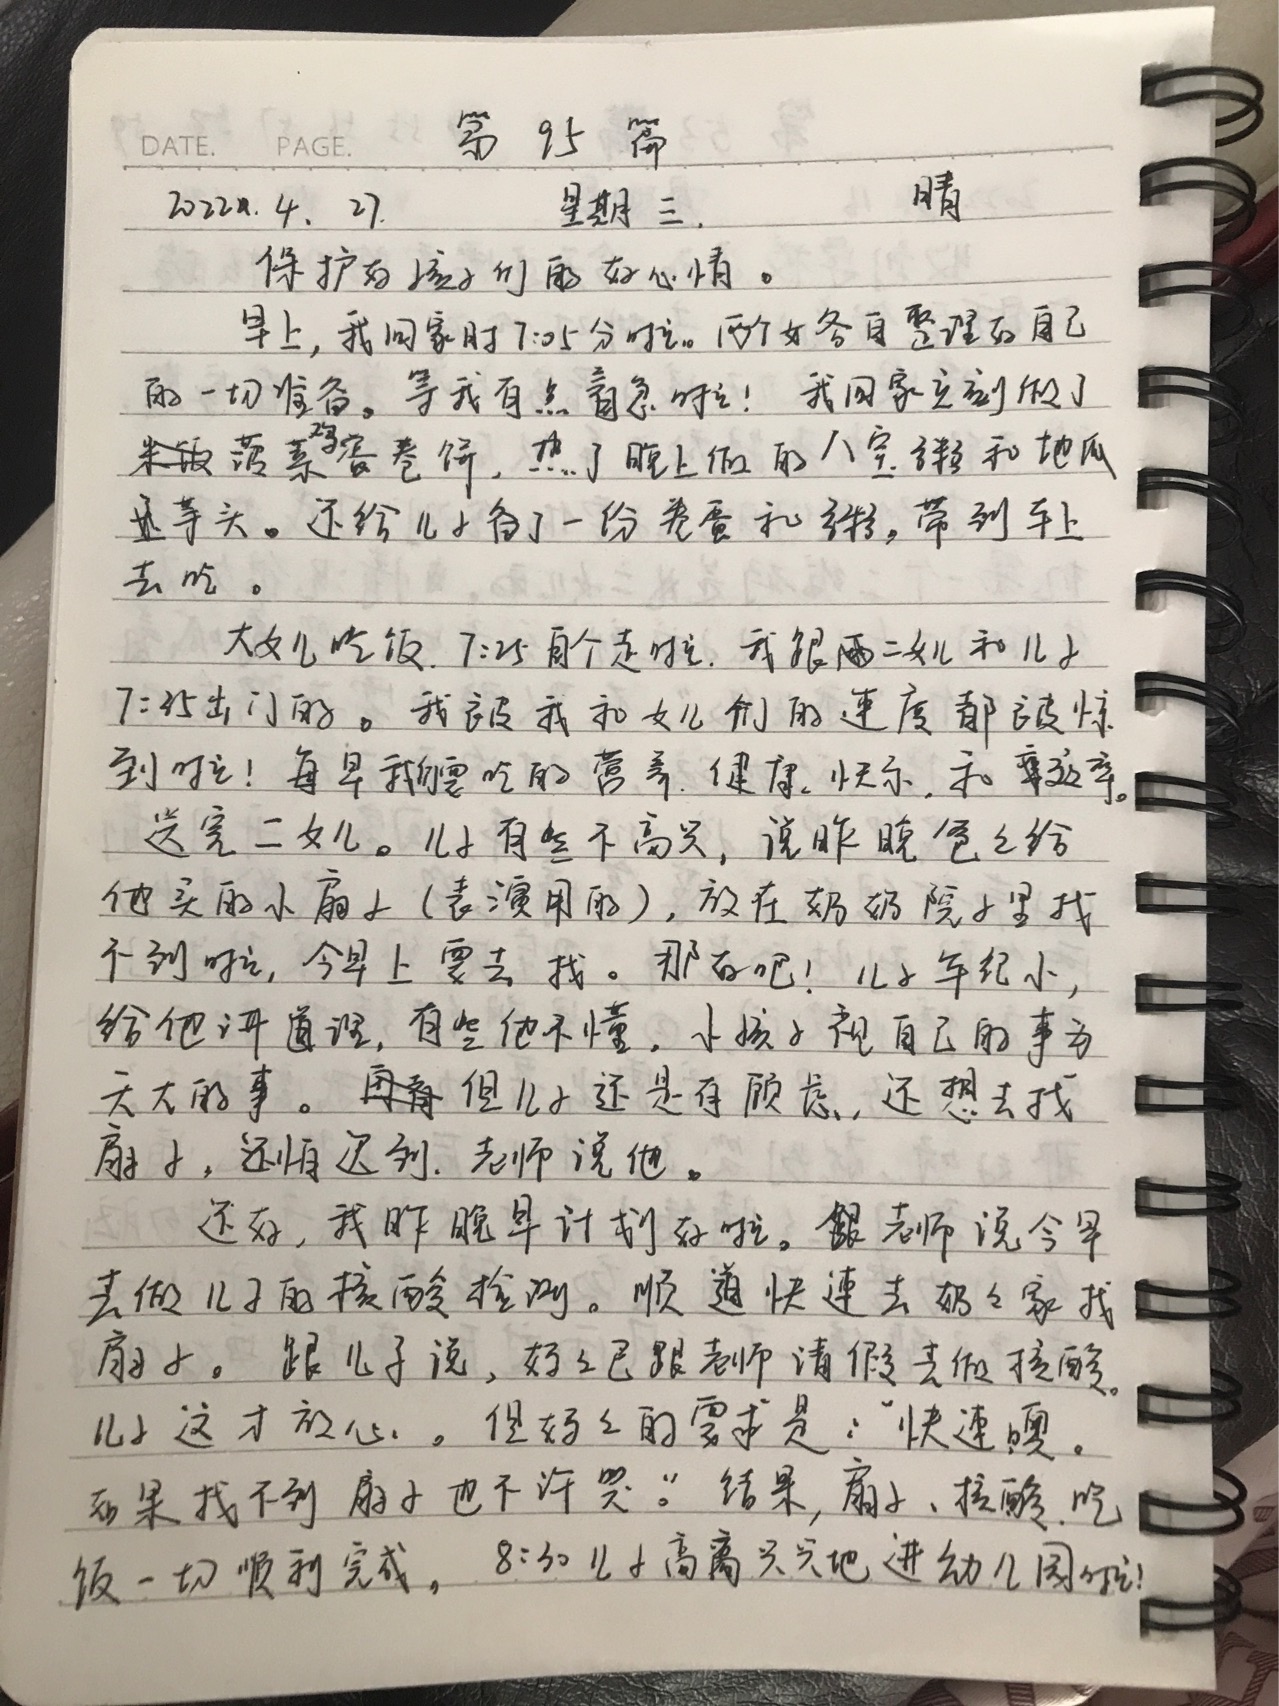 DATE. PAGE. 第 95 篇
2022年. 4. 27. 星期三. 晴
保护好孩子们的好心情。
早上，我回家时7:05分啦。两个女各自整理好自己
的一切准备。等我有点着急啦！我回家立刻做了
菠菜鸡蛋卷饼，热了晚上做的八宝粥和地瓜
芋头。还给儿子备了一份卷蛋和粥，带到车上
去吃。
大女儿吃饭.7:25自个走啦.我跟二女儿和儿子
7:35出门的。我被我和女儿们的速度都被惊
到啦！每早我们要吃的营养.健康.快乐,和效率。
送完二女儿。儿子有些不高兴，说昨晚爸爸给
他买的小扇子（表演用的），放在奶奶院子里找
不到啦，今早上要去找。那好吧！儿子年纪小，
给他讲道理，有些他不懂，小孩子视自己的事为
天大的事。但儿子还是有顾虑，还想去找
扇子，还怕迟到.老师说他。
还好，我昨晚早计划好啦。跟老师说今早
去做儿子的核酸检测。顺道快速去奶奶家找
扇子。跟儿子说，妈妈已跟老师请假去做核酸。
儿子这才放心。但妈妈的要求是："快速噢。
如果找不到扇子也不许哭。"结果，扇子、核酸.吃
饭一切顺利完成，8:30儿子高高兴兴地进幼儿园啦！